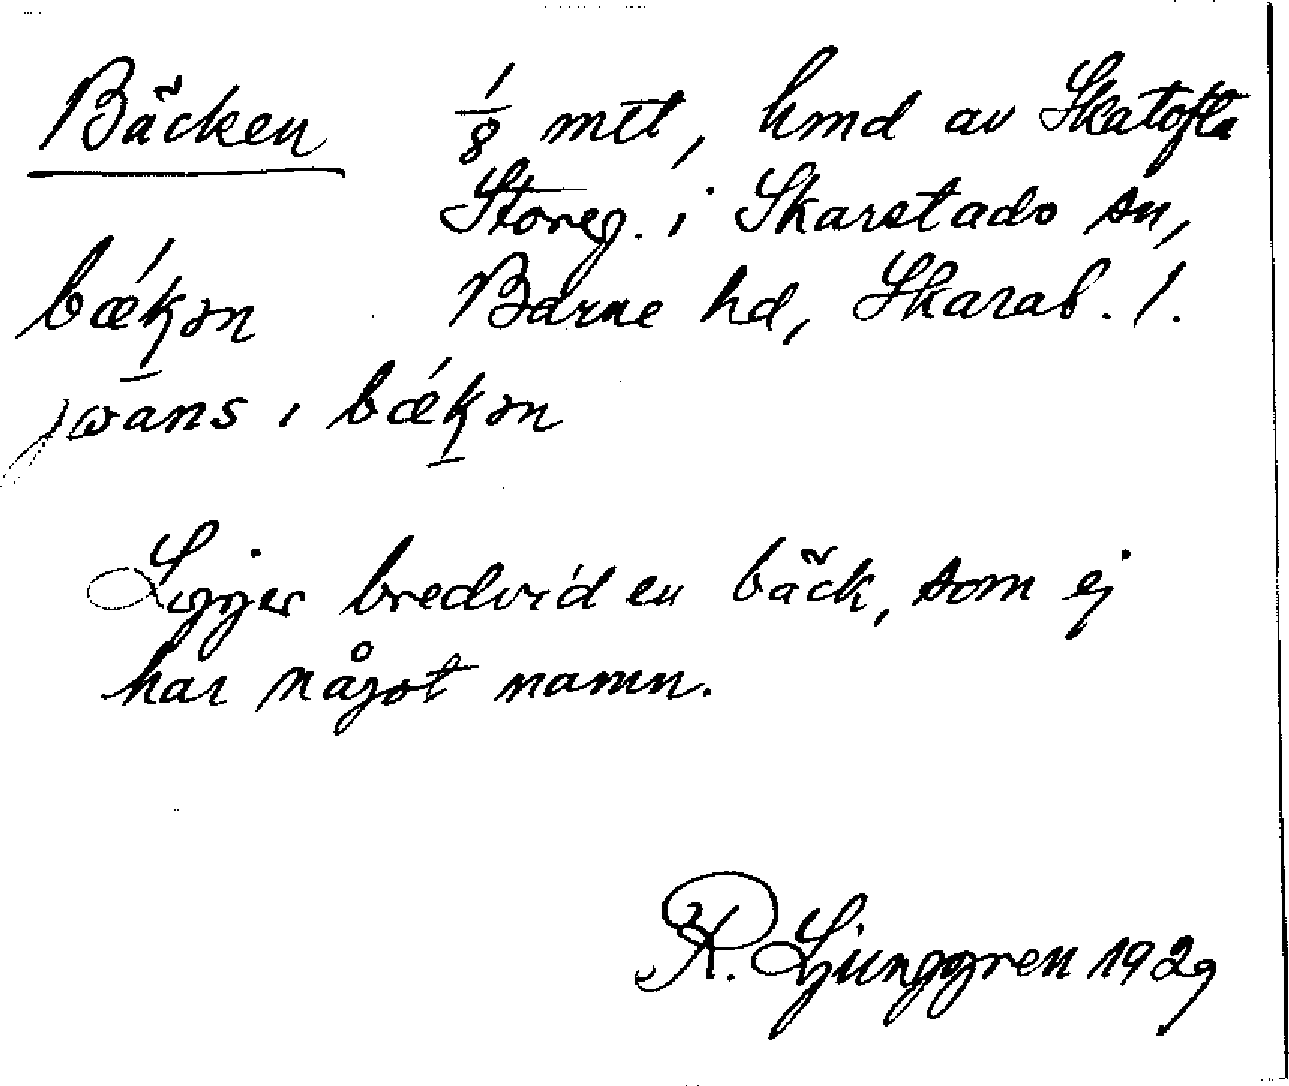 Bäcken 1/8 mtl, hmd av Skatofta
Storeg. i Skarstads sn,
bǽkən Barne hd, Skarab. l.
jωans i bǽkən
Ligger bredvid en bäck, som ej
har något namn.
R. Ljunggren 1929